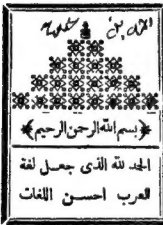 بسم الله الرحمن الرحيم
الحمد لله الذى جعل لغة
العرب احسن اللغات